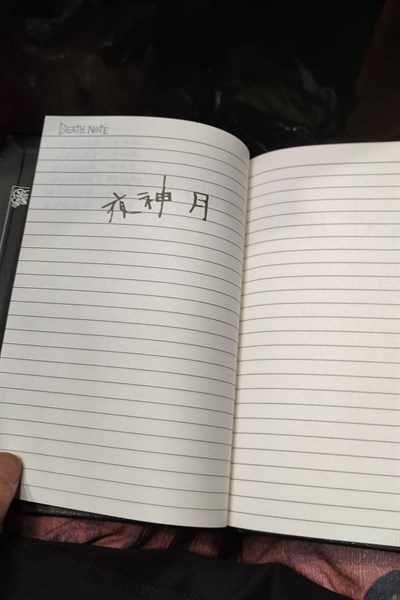 DEATH NOTE
夜神月